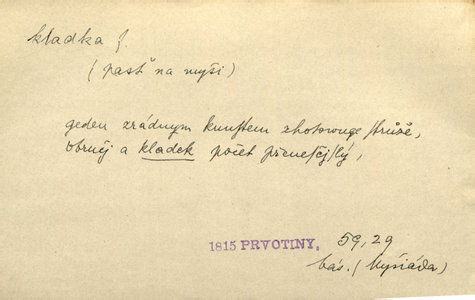 kladka f.
(past na myši)
geden zrádnym kunſtem zhotowuge ſtrůže,
obručj a kladek počet přeneſčjſlný,
1815 PRVOTINY, 59, 29
bás. (Myšiáda)